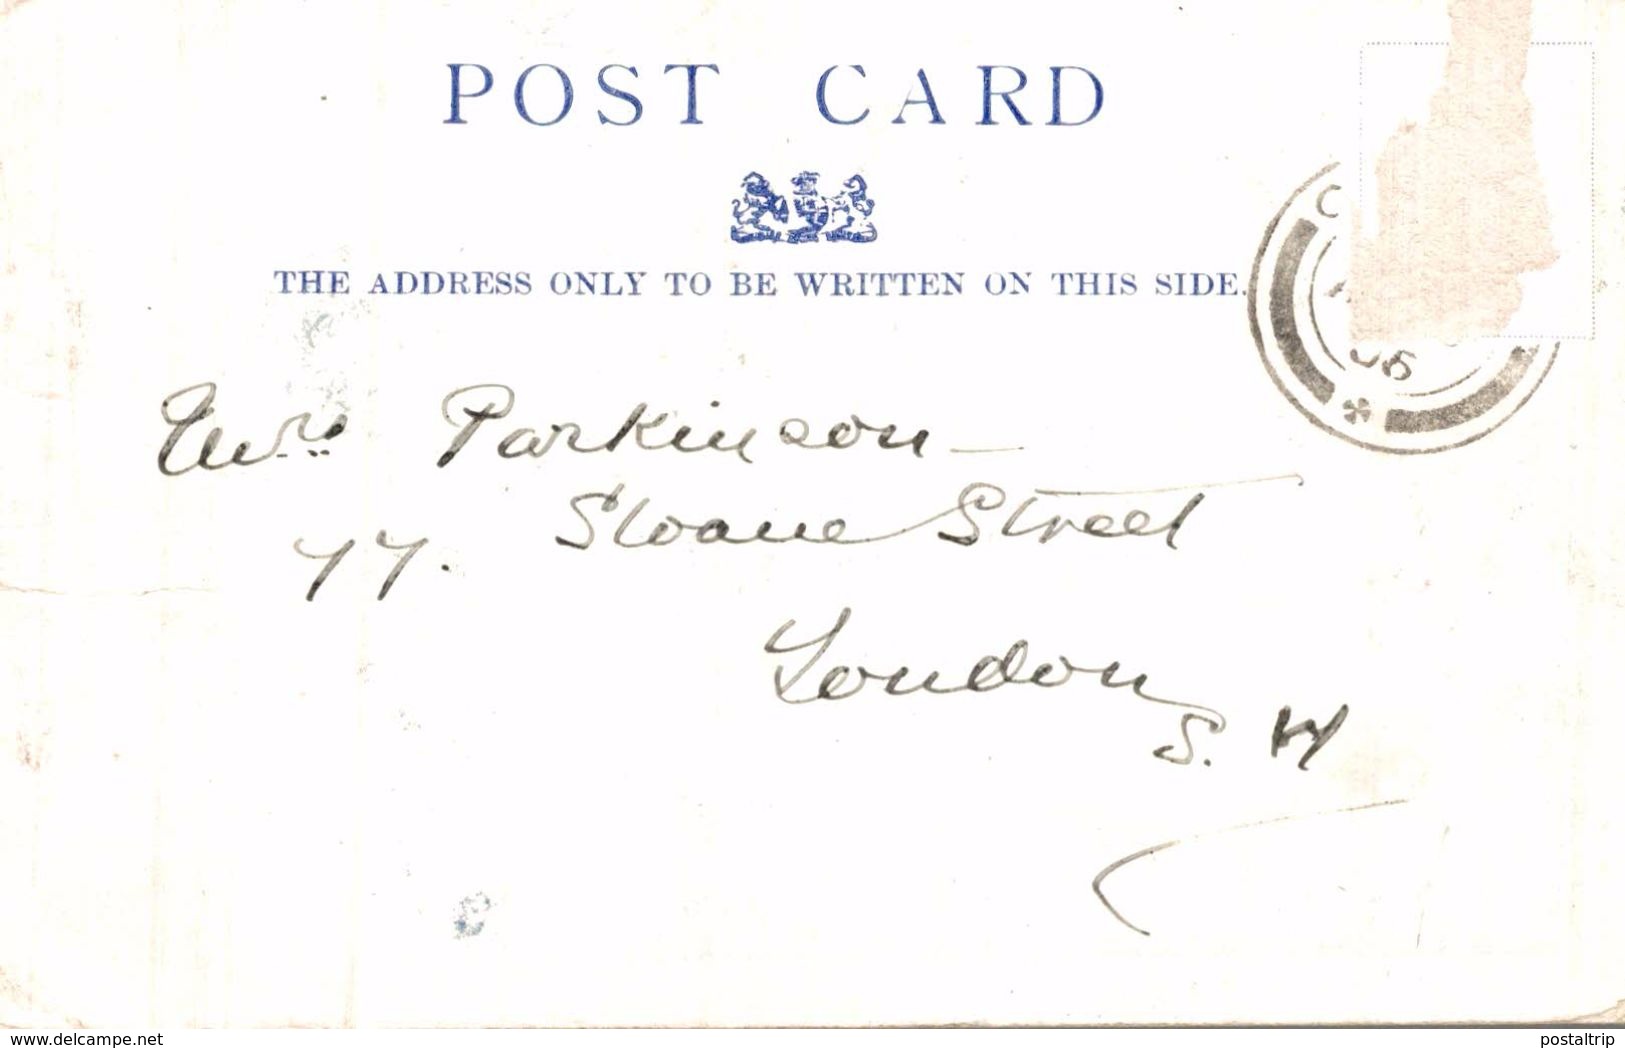 POST CARD
THE ADDRESS ONLY TO BE WRITTEN ON THIS SIDE.
06
Mrs Parkinson
77. Sloane Street
London
S. W
www.delcampe.net
postaltrip